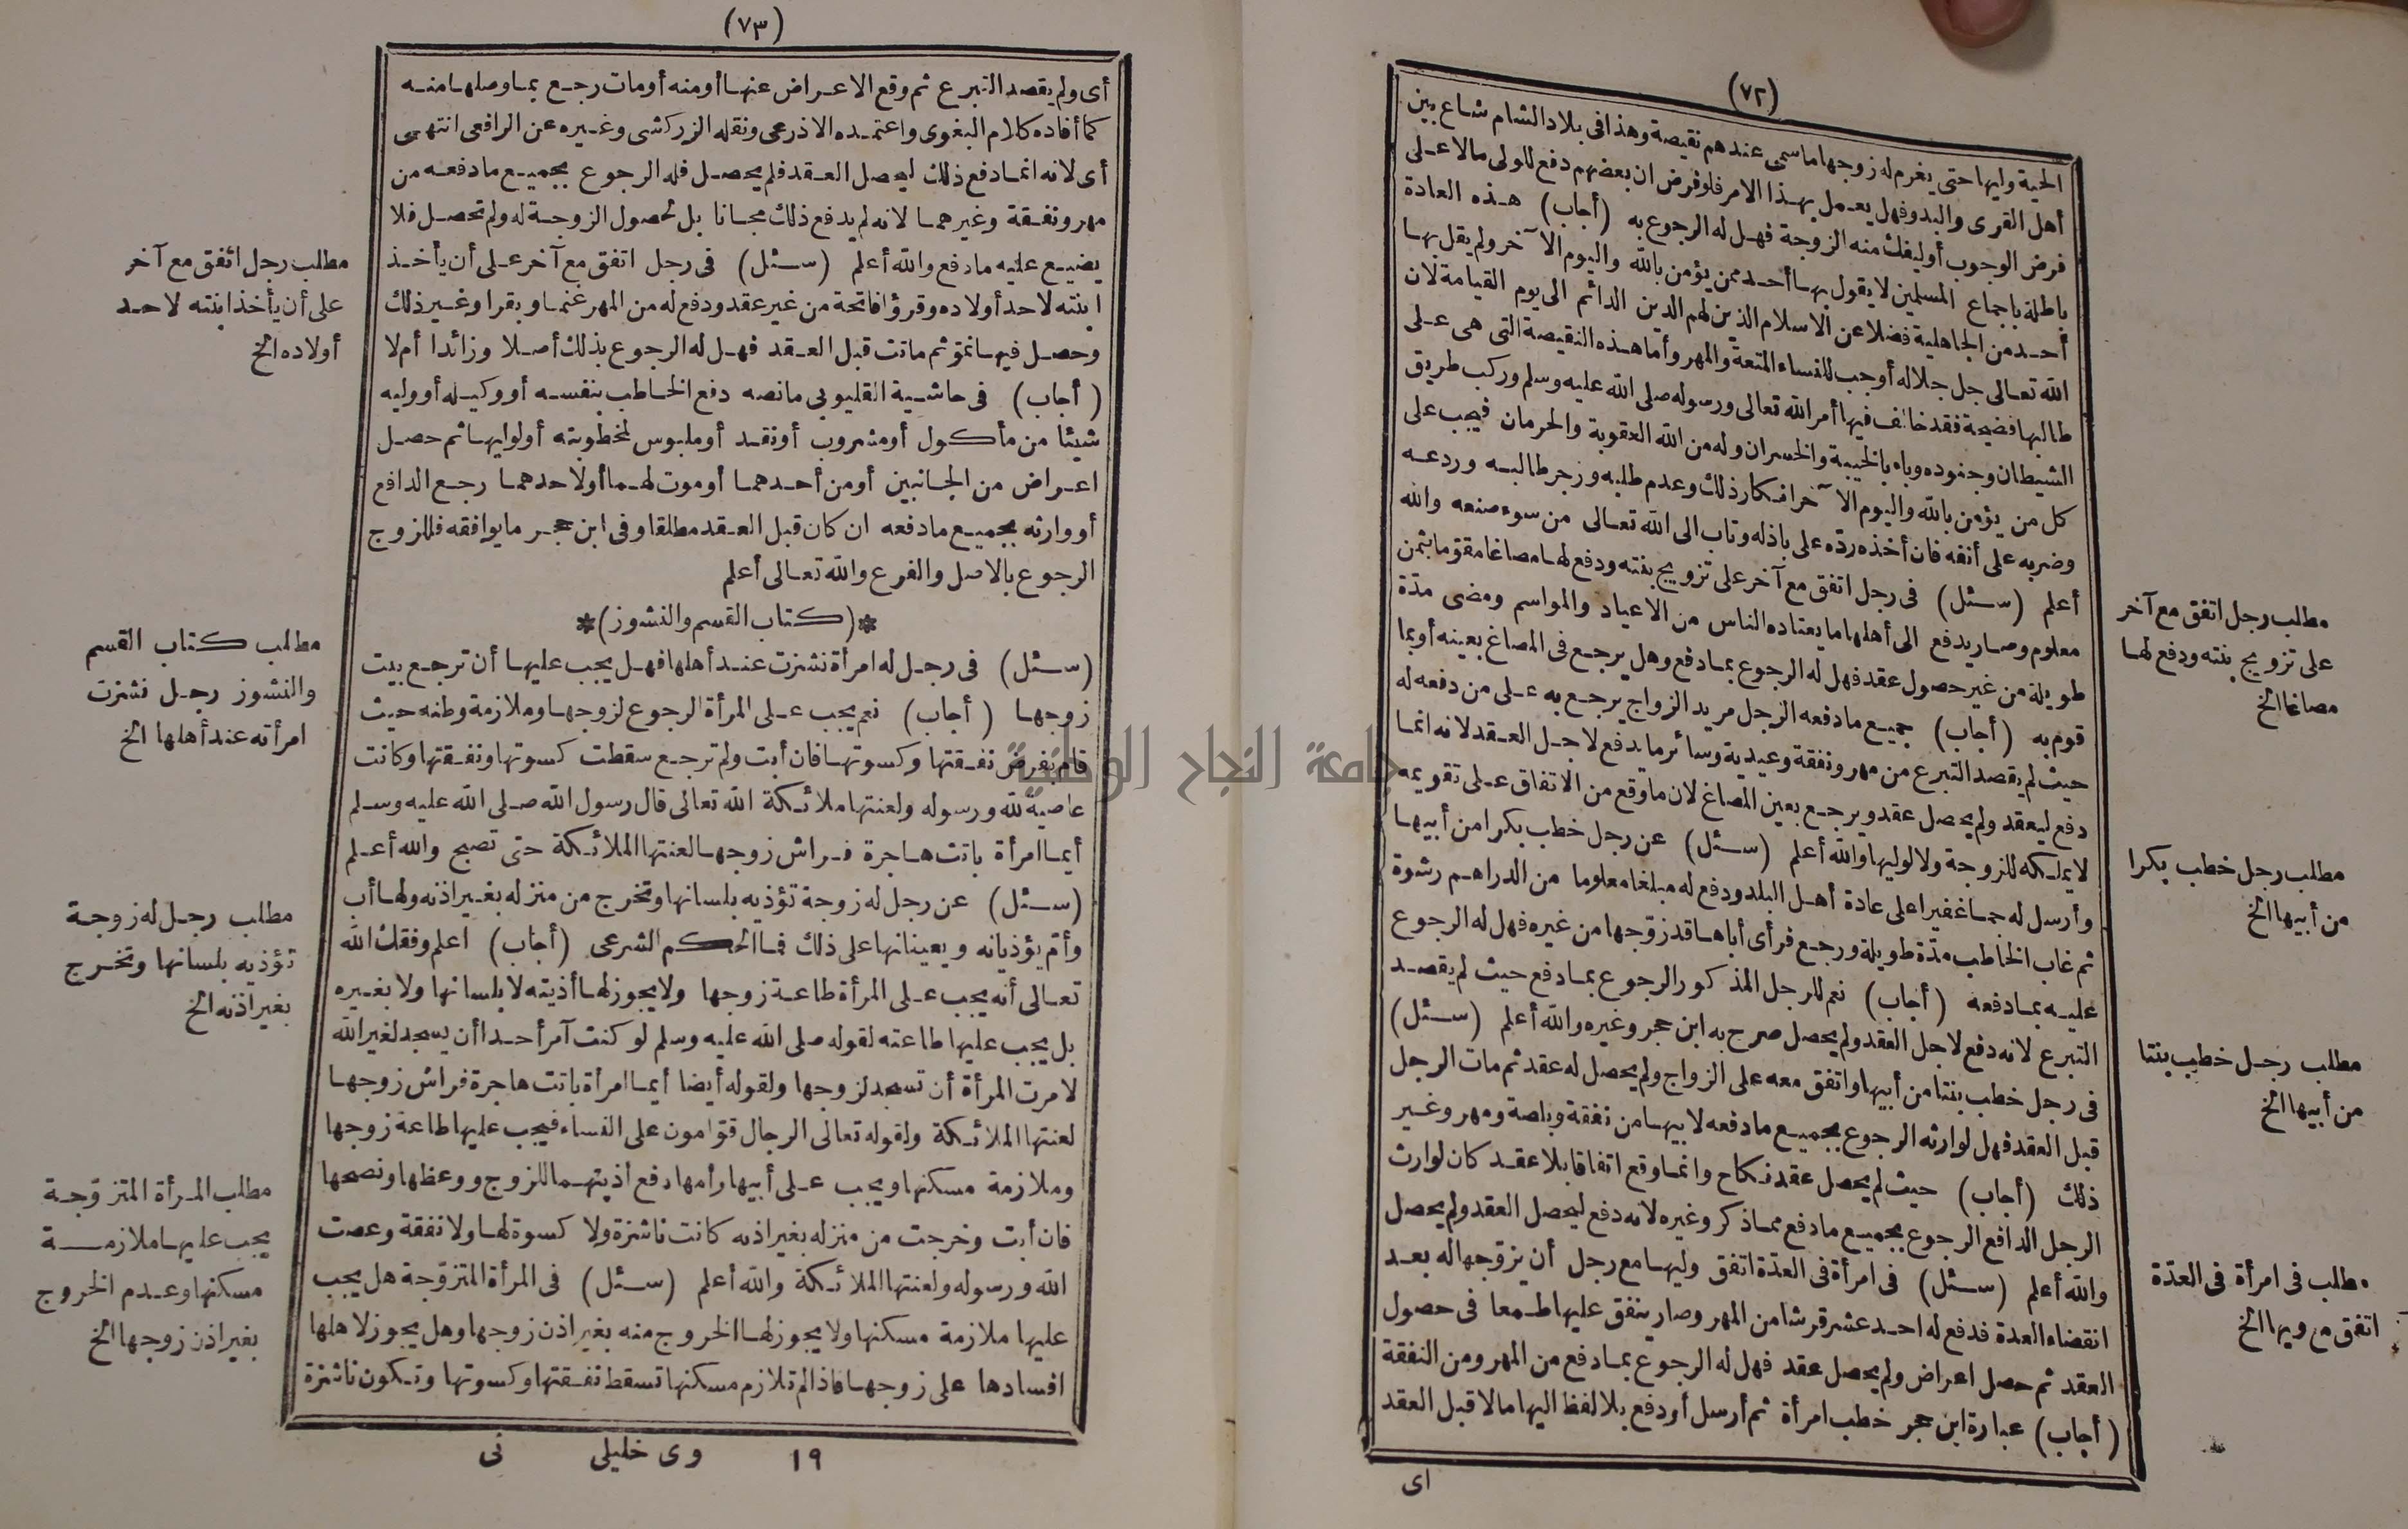 (٧٢)
الحية وليها حتى يغرم له زوجها ماسمى عندهم نقيصة وهذا فى بلاد الشام شاع بين
أهل القرى والبدو فهل يعمل بهذا الامر فلو فرض ان بعضهم دفع للولى مالا على
فرض الوجوب أو ليفك منه الزوجة فهل له الرجوع به (أجاب) هذه العادة
باطلة باجماع المسلمين لا يقول بها أحد ممن يؤمن بالله واليوم الآخر ولم يقل بها
أحد من الجاهلية فضلا عن الاسلام الذين لهم الدين الدائم الى يوم القيامة لان
الله تعالى جل جلاله أوجب للنساء المتعة والمهر وأما هذه النقيصة التى هى على
طالبها فضيحة فقد خالف فيها أمر الله تعالى ورسوله صلى الله عليه وسلم وركب طريق
الشيطان وجنوده وباء بالخيبة والخسران وله من الله العقوبة والحرمان فيجب على
كل من يؤمن بالله واليوم الآخر انكار ذلك وعدم طلبه وزجر طالبه وردعه
وضربه على أنفه فان أخذه ردّه على باذله وتاب الى الله تعالى من سوء صنعه والله
أعلم (سئل) فى رجل اتفق مع آخر على تزويج بنته ودفع لها مصاغا مقوّما بثمن
معلوم وصار يدفع الى أهلها ما يعتاده الناس من الاعياد والمواسم ومضى مدّة
طويلة من غير حصول عقد فهل له الرجوع بما دفع وهل يرجع فى المصاغ بعينه أو بما
قوم به (أجاب) جميع ما دفعه الرجل مريد الزواج يرجع به على من دفعه له
حيث لم يقصد التبرع من مهر ونفقة وعيدية وسائر ما يدفع لاجل العقد لانه انما
دفع ليعقد ولم يحصل عقد ويرجع بعين المصاغ لان ما وقع من الاتفاق على تقويمه
لا يملكه للزوجة ولا لوليها والله أعلم (سئل) عن رجل خطب بكرا من أبيها
وأرسل له جما غفيرا على عادة أهل البلد ودفع له مبلغا معلوما من الدراهم رشوة
ثم غاب الخاطب مدّة طويلة ورجع فرأى أباها قد زوّجها من غيره فهل له الرجوع
عليه بما دفعه (أجاب) نعم للرجل المذكور الرجوع بما دفع حيث لم يقصد
التبرع لانه دفع لاجل العقد ولم يحصل صرح به ابن حجر وغيره والله أعلم (سئل)
فى رجل خطب بنتا من أبيها واتفق معه على الزواج ولم يحصل له عقد ثم مات الرجل
قبل العقد فهل لوارثه الرجوع بجميع ما دفعه لابيها من نفقة وبلصة ومهر وغير
ذلك (أجاب) حيث لم يحصل عقد نكاح وانما وقع اتفاقا بلا عقد كان لوارث
الرجل الدافع الرجوع بجميع ما دفع مما ذكر وغيره لانه دفع ليحصل العقد ولم يحصل
والله أعلم (سئل) فى امرأة فى العدّة اتفق وليها مع رجل أن يزوّجها له بعد
انقضاء العدة فدفع له احد عشر قرشا من المهر وصار ينفق عليها طمعا فى حصول
العقد ثم حصل اعراض ولم يحصل عقد فهل له الرجوع بما دفع من المهر ومن النفقة
(أجاب) عبارة ابن حجر خطب امرأة ثم أرسل أو دفع بلا لفظ اليها مالا قبل العقد
اى
مطلب رجل اتفق مع آخر
على تزويج بنته ودفع لها
مصاغا الخ
مطلب رجل خطب بكرا
من أبيها الخ
مطلب رجل خطب بنتا
من أبيها الخ
مطلب فى امرأة فى العدّة
اتفق مع وليها الخ
(٧٣)
أى ولم يقصد التبرع ثم وقع الاعراض عنها أو منه أو مات رجع بما وصلها منه
كما أفاده كلام البغوى واعتمده الاذرعى ونقله الزركشى وغيره عن الرافعى انتهى
أى لانه انما دفع ذلك ليحصل العقد فلم يحصل فله الرجوع بجميع ما دفعه من
مهر ونفقة وغيرهما لانه لم يدفع ذلك مجانا بل لحصول الزوجة له ولم تحصل فلا
يضيع عليه ما دفع والله أعلم (سئل) فى رجل اتفق مع آخر على أن يأخذ
ابنته لاحد أولاده وقرؤا فاتحة من غير عقد ودفع له من المهر غنما وبقرا وغير ذلك
وحصل فيها نموّ ثم ماتت قبل العقد فهل له الرجوع بذلك أصلا وزائدا أم لا
(أجاب) فى حاشية القليوبى ما نصه دفع الخاطب بنفسه أو وكيله أو وليه
شيئا من مأكول أو مشروب أو نقد أو ملبوس لمخطوبته أو لوليها ثم حصل
اعراض من الجانبين أو من أحدهما أو موت لهما أو لاحدهما رجع الدافع
أو وارثه بجميع ما دفعه ان كان قبل العقد مطلقا وفى ابن حجر ما يوافقه فللزوج
الرجوع بالاصل والفرع والله تعالى أعلم
*(كتاب القسم والنشوز)*
(سئل) فى رجل له امرأة نشزت عند أهلها فهل يجب عليها أن ترجع بيت
زوجها (أجاب) نعم يجب على المرأة الرجوع لزوجها وملازمة وطنه حيث
قام بفرض نفقتها وكسوتها فان أبت ولم ترجع سقطت كسوتها ونفقتها وكانت
عاصية لله ورسوله ولعنتها ملائكة الله تعالى قال رسول الله صلى الله عليه وسلم
أيما امرأة باتت هاجرة فراش زوجها لعنتها الملائكة حتى تصبح والله أعلم
(سئل) عن رجل له زوجة تؤذيه بلسانها وتخرج من منزله بغير اذنه ولها أب
وأمّ يؤذيانه ويعينانها على ذلك فما الحكم الشرعى (أجاب) اعلم وفقك الله
تعالى أنه يجب على المرأة طاعة زوجها ولا يجوز لها أذيته لا بلسانها ولا بغيره
بل يجب عليها طاعته لقوله صلى الله عليه وسلم لو كنت آمر أحدا أن يسجد لغير الله
لامرت المرأة أن تسجد لزوجها ولقوله أيضا أيما امرأة باتت هاجرة فراش زوجها
لعنتها الملائكة ولقوله تعالى الرجال قوّامون على النساء فيجب عليها طاعة زوجها
وملازمة مسكنها ويجب على أبيها وأمها دفع أذيتهما للزوج ووعظها ونصحها
فان أبت وخرجت من منزله بغير اذنه كانت ناشزة ولا كسوة لها ولا نفقة وعصت
الله ورسوله ولعنتها الملائكة والله أعلم (سئل) فى المرأة المتزوّجة هل يجب
عليها ملازمة مسكنها ولا يجوز لها الخروج منه بغير اذن زوجها وهل يجوز لاهلها
افسادها على زوجها فاذا لم تلازم مسكنها تسقط نفقتها وكسوتها وتكون ناشزة
١٩ وى خليلى نى
مطلب رجل اتفق مع آخر
على أن يأخذ ابنته لاحد
أولاده الخ
مطلب كتاب القسم
والنشوز رجل نشزت
امرأته عند أهلها الخ
مطلب رجل له زوجة
تؤذيه بلسانها وتخرج
بغير اذنه الخ
مطلب المرأة المتزوّجة
يجب عليها ملازمة
مسكنها وعدم الخروج
بغير اذن زوجها الخ
جامعة النجاح الوطنية